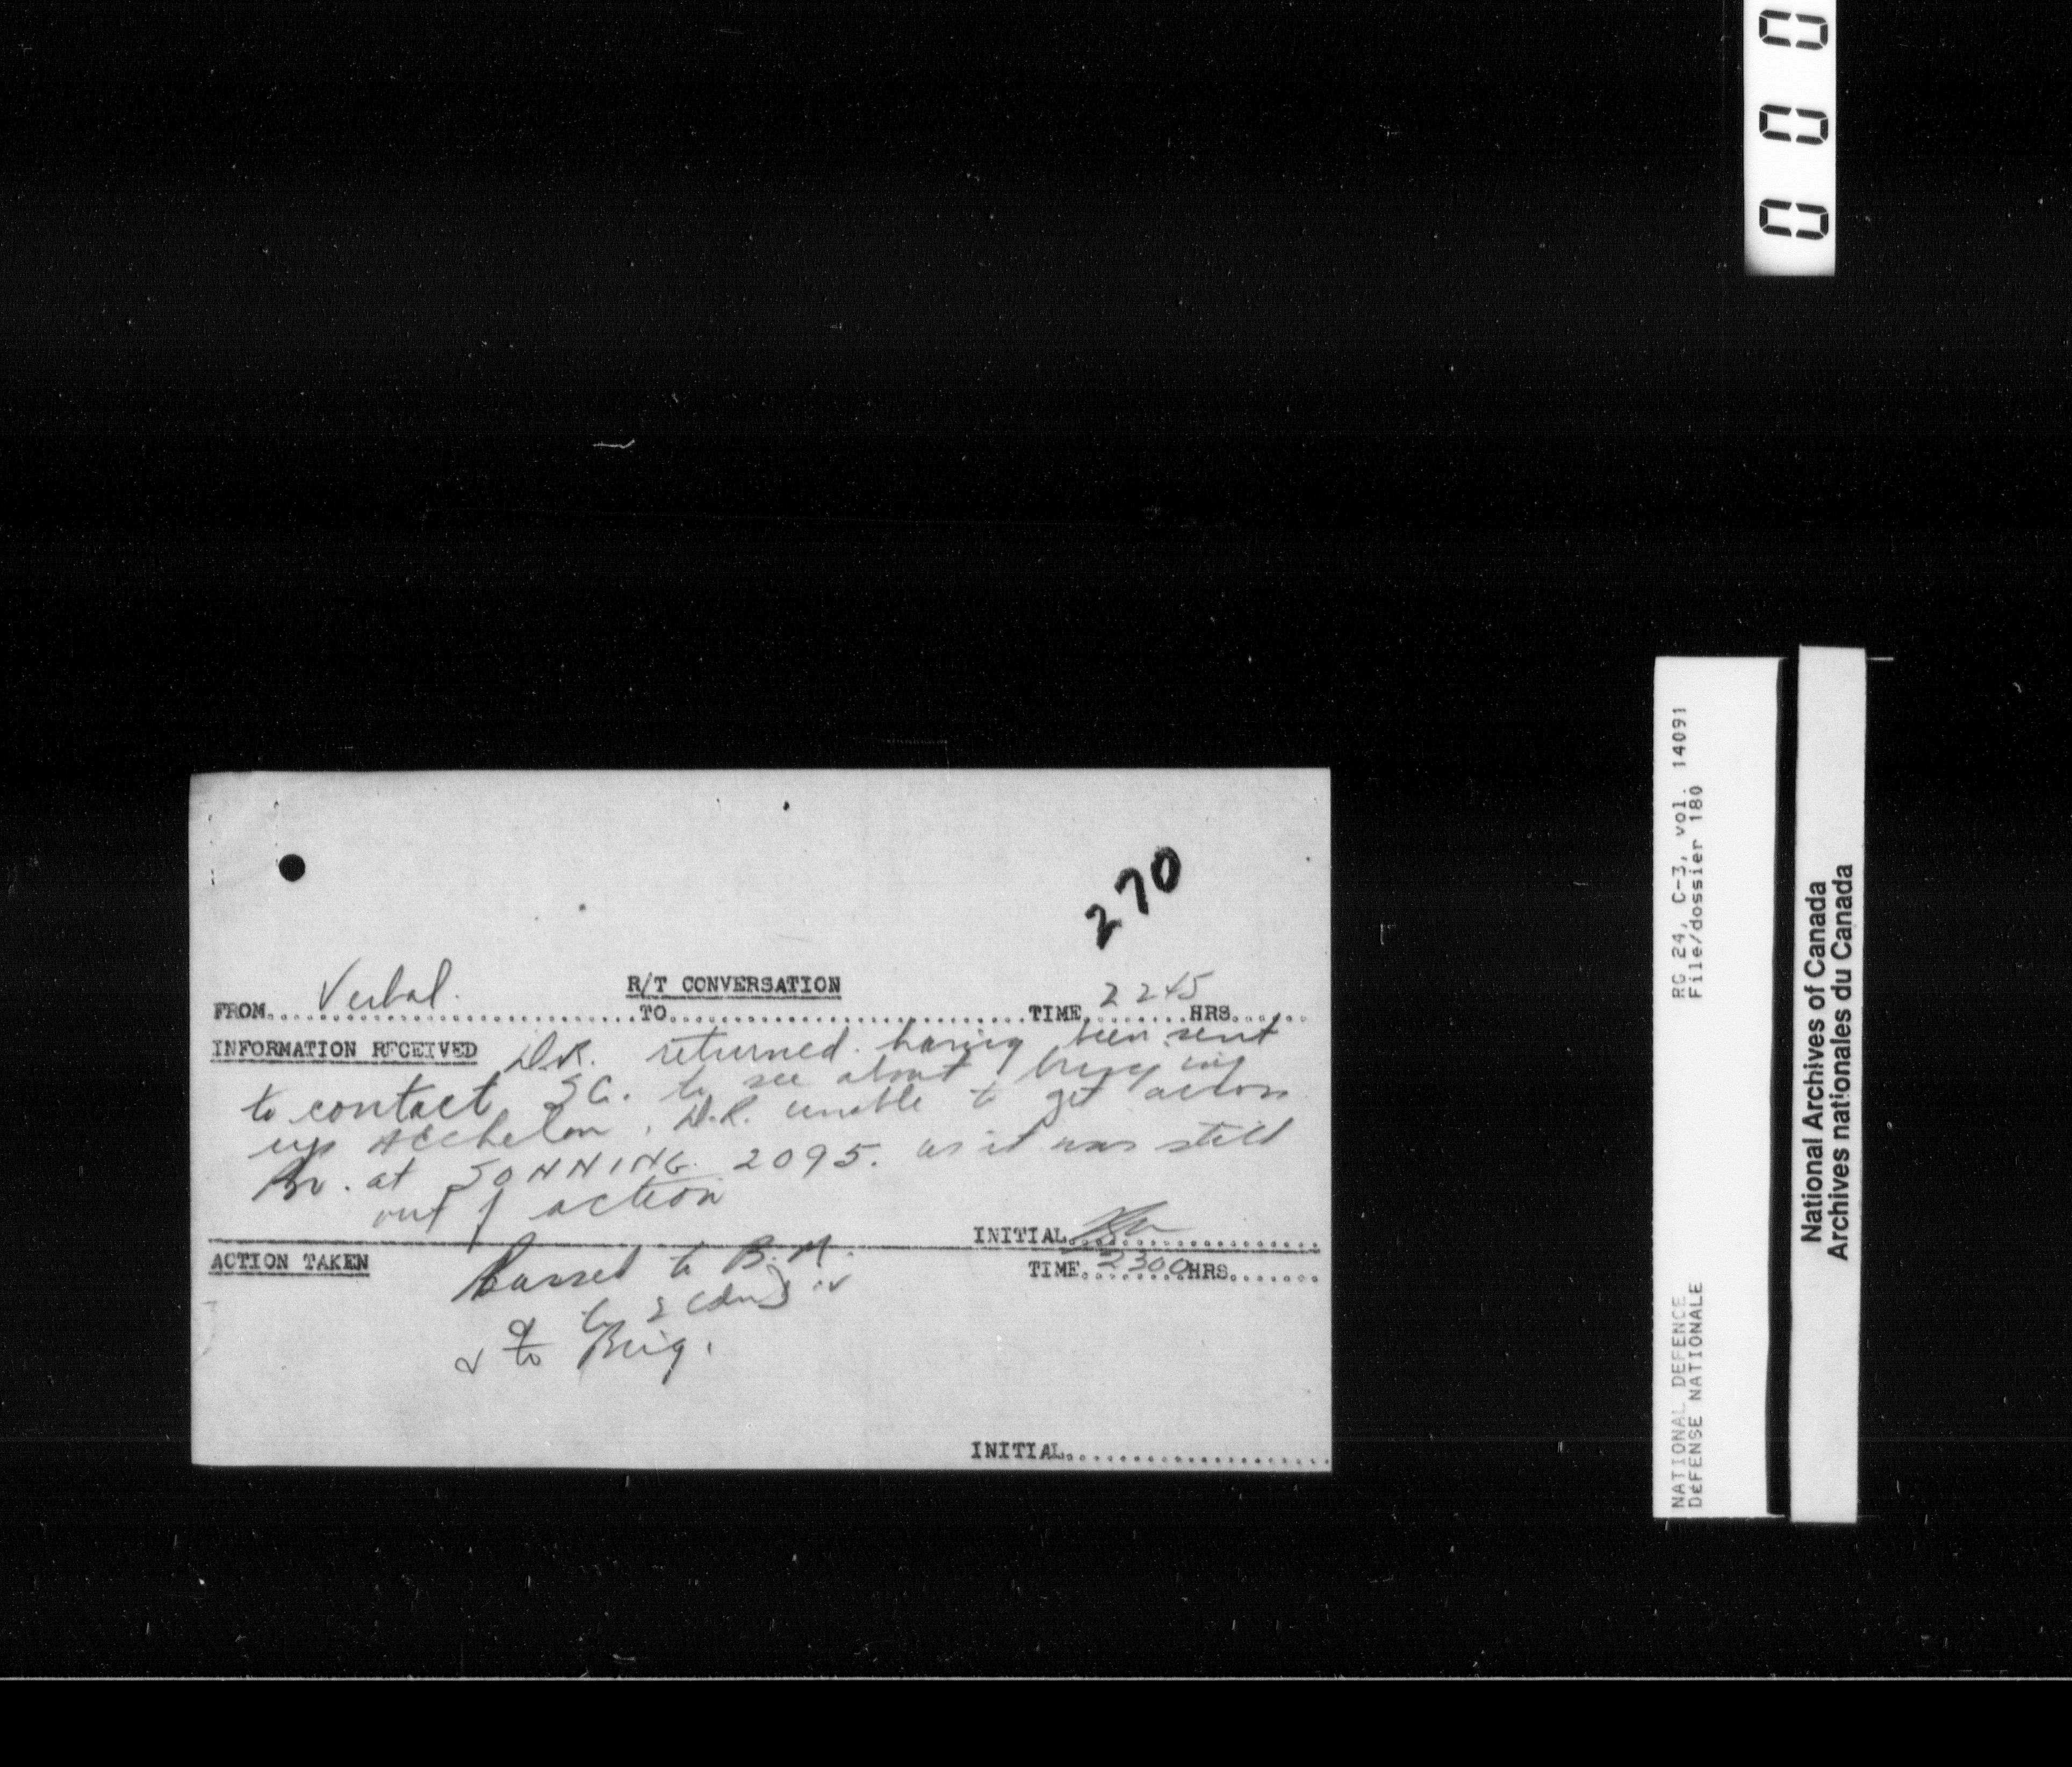 0 0 0
270
R/T CONVERSATION
FROM Verbal. TO TIME 2245 HRS
INFORMATION RECEIVED D.R. returned having been sent
to contact SC. to see about bringing
up A Echelon. D.R. unable to get across
Br. at SONNING 2095. as it was still
out of action
INITIAL
ACTION TAKEN Passed to B.M. TIME 2300 HRS
to 2 Cdn Div
& to Brig.
INITIAL
RG 24, C-3, vol. 14091
File/dossier 180
NATIONAL DEFENCE
DéFENSE NATIONALE
National Archives of Canada
Archives nationales du Canada